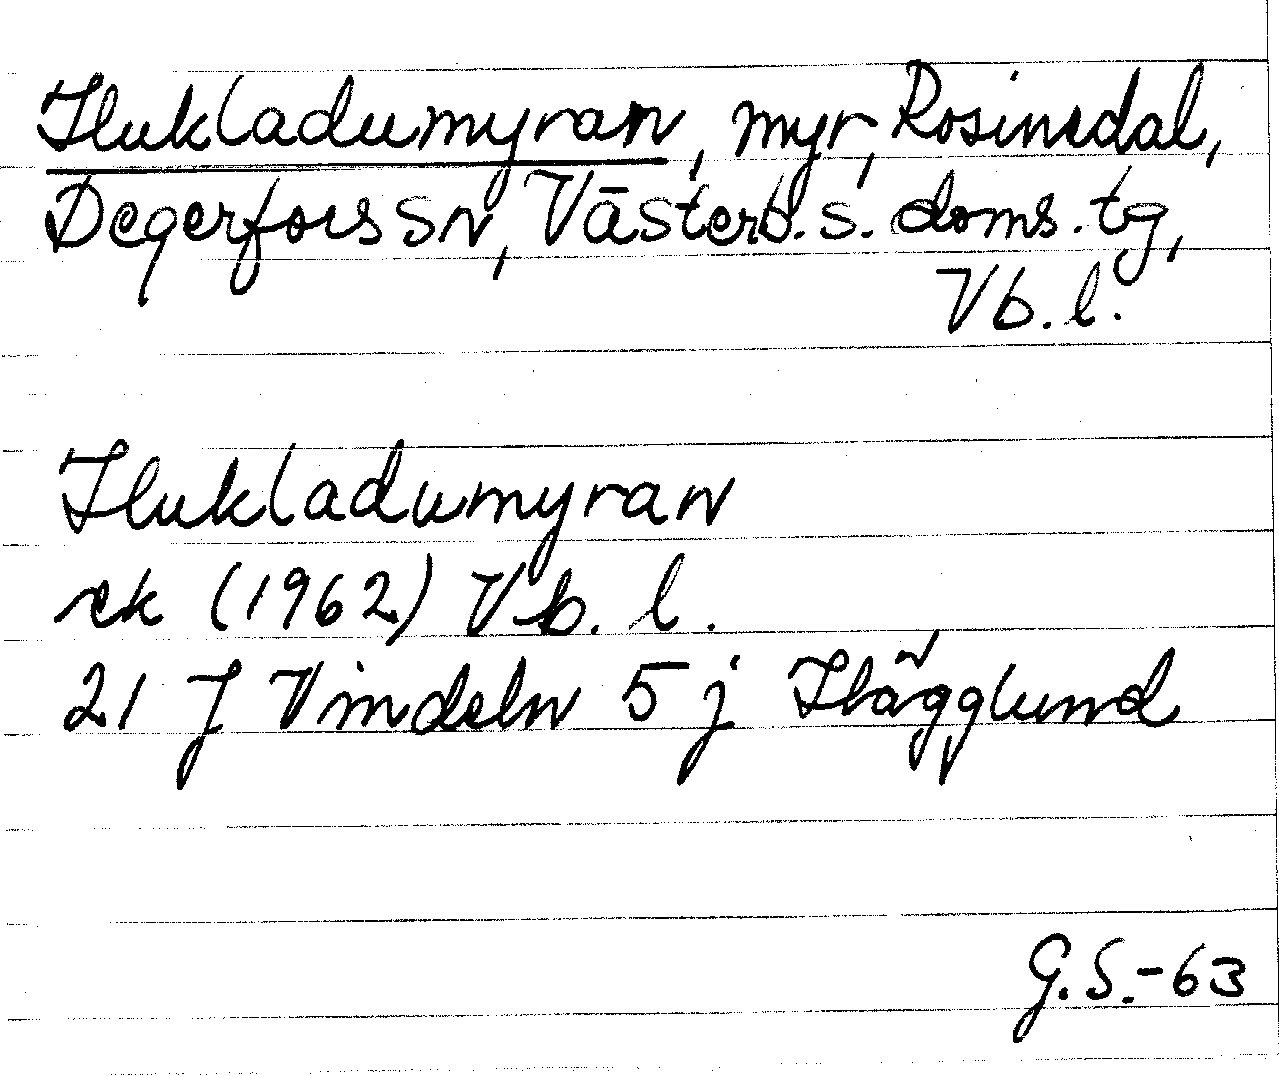 Hukladumyran, myr, Rosinedal,
Degerfors sn, Västerb. s. doms. tg,
Vb. l.
Hukladumyran
ek (1962) Vb. l.
21 J Vindeln 5 j Hägglund
G.S.-63